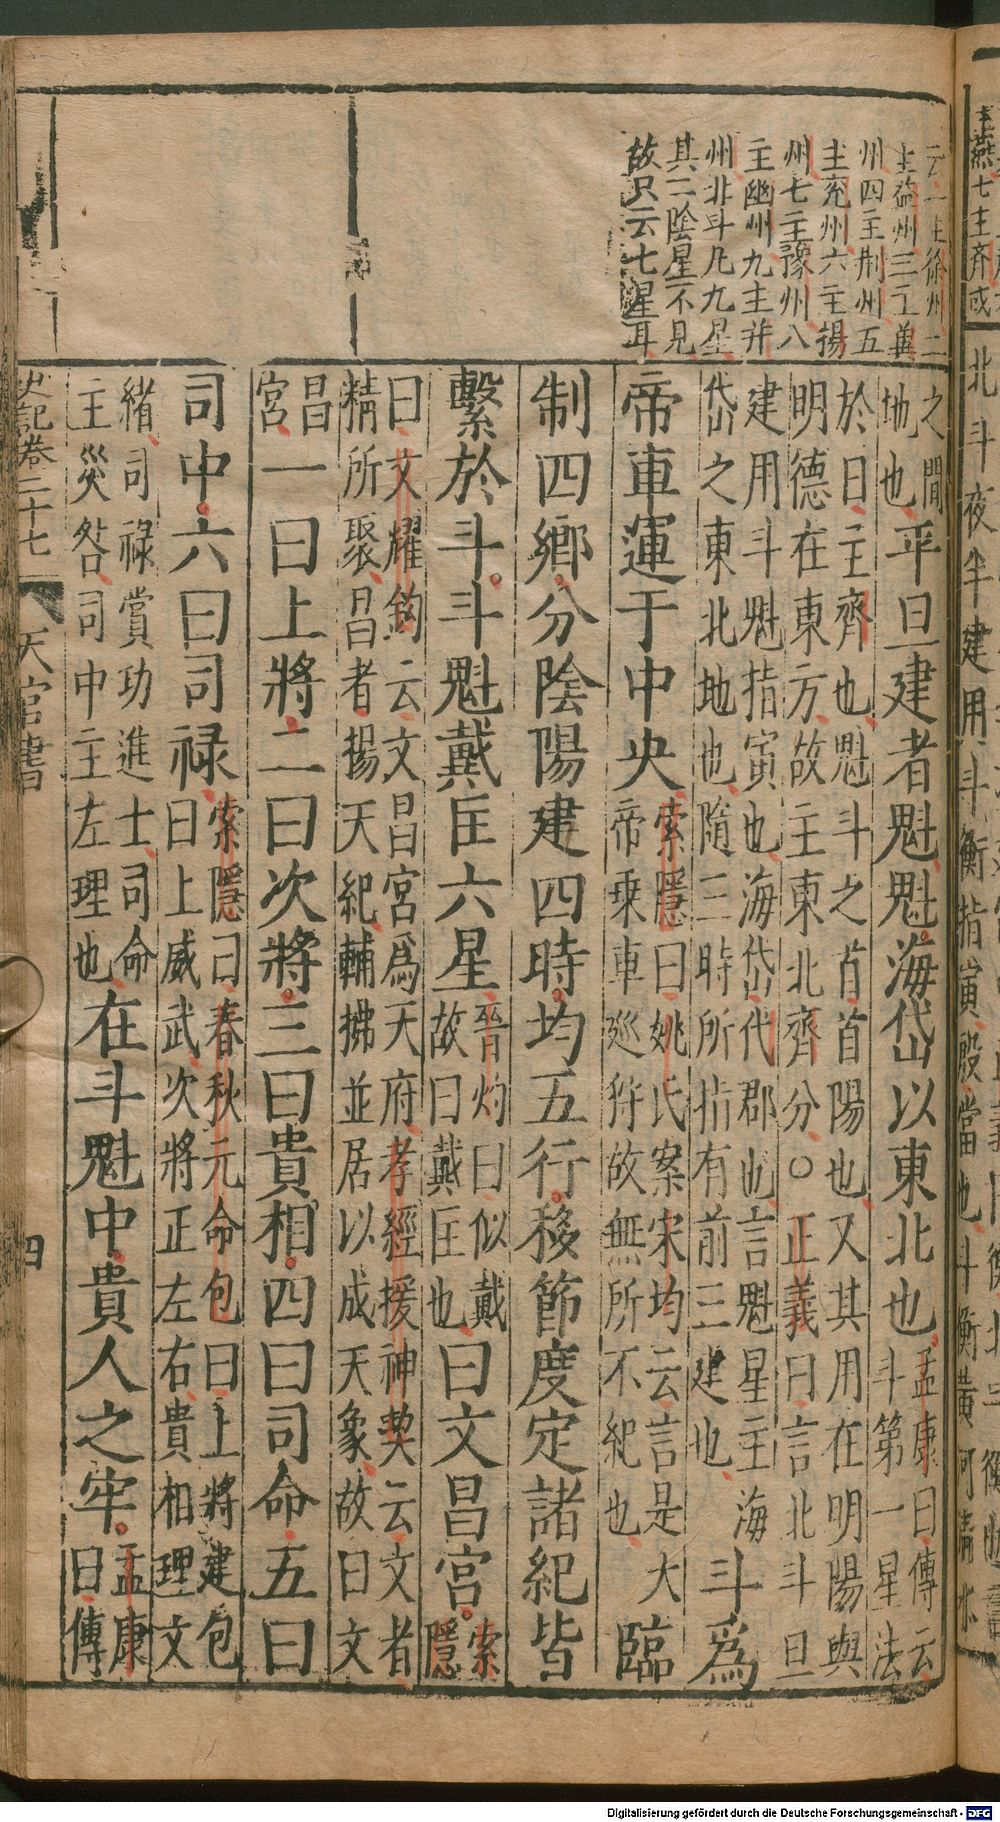 云一主徐州二
主益州三主冀
州四主荆州五
主兖州六主揚
州七主豫州八
主幽州九主并
州北斗凡九星
其二陰星不見
故只云七星耳
之間
地也平旦建者魁魁海岱以東北也孟康曰傳云
斗第一星法
於日主齊也魁斗之首首陽也又其用在明陽與
明德在東方故主東北齊分○正義曰言北斗旦
建用斗魁指寅也海岱代郡也言魁星主海
岱之東北地也隨三時所指有前三建也斗爲
帝車運于中央索隱曰姚氏案宋均云言是大
帝乘車巡狩故無所不紀也臨
制四鄉分陰陽建四時均五行移節度定諸紀皆
繫於斗斗魁戴匡六星晉灼曰似戴
故曰戴匡也曰文昌宮索
隱
曰文耀鉤云文昌宮爲天府孝經援神契云文者
精所聚昌者揚天紀輔拂並居以成天象故曰文
昌
宮一曰上將二曰次將三曰貴相四曰司命五曰
司中六曰司禄索隱曰春秋元命包曰上將建包
曰上威武次將正左右貴相理文
緒司禄賞功進士司命
主災咎司中主左理也在斗魁中貴人之牢孟康
曰傳
史記卷二十七
天官書
四
主燕七主齊或
北斗夜半建用斗衡指寅殷當也斗衡黄河
Digitalisierung gefördert durch die Deutsche Forschungsgemeinschaft - DFG